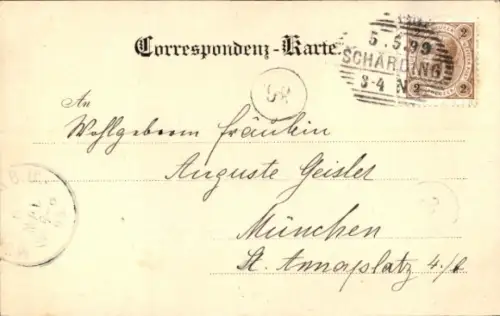 Correspondenz-Karte.
5.5.99
SCHÄRDING
3-4 N
2 2
An
Wohlgeboren Fräulein
Auguste Geisler
München
St. Annaplatz 4/